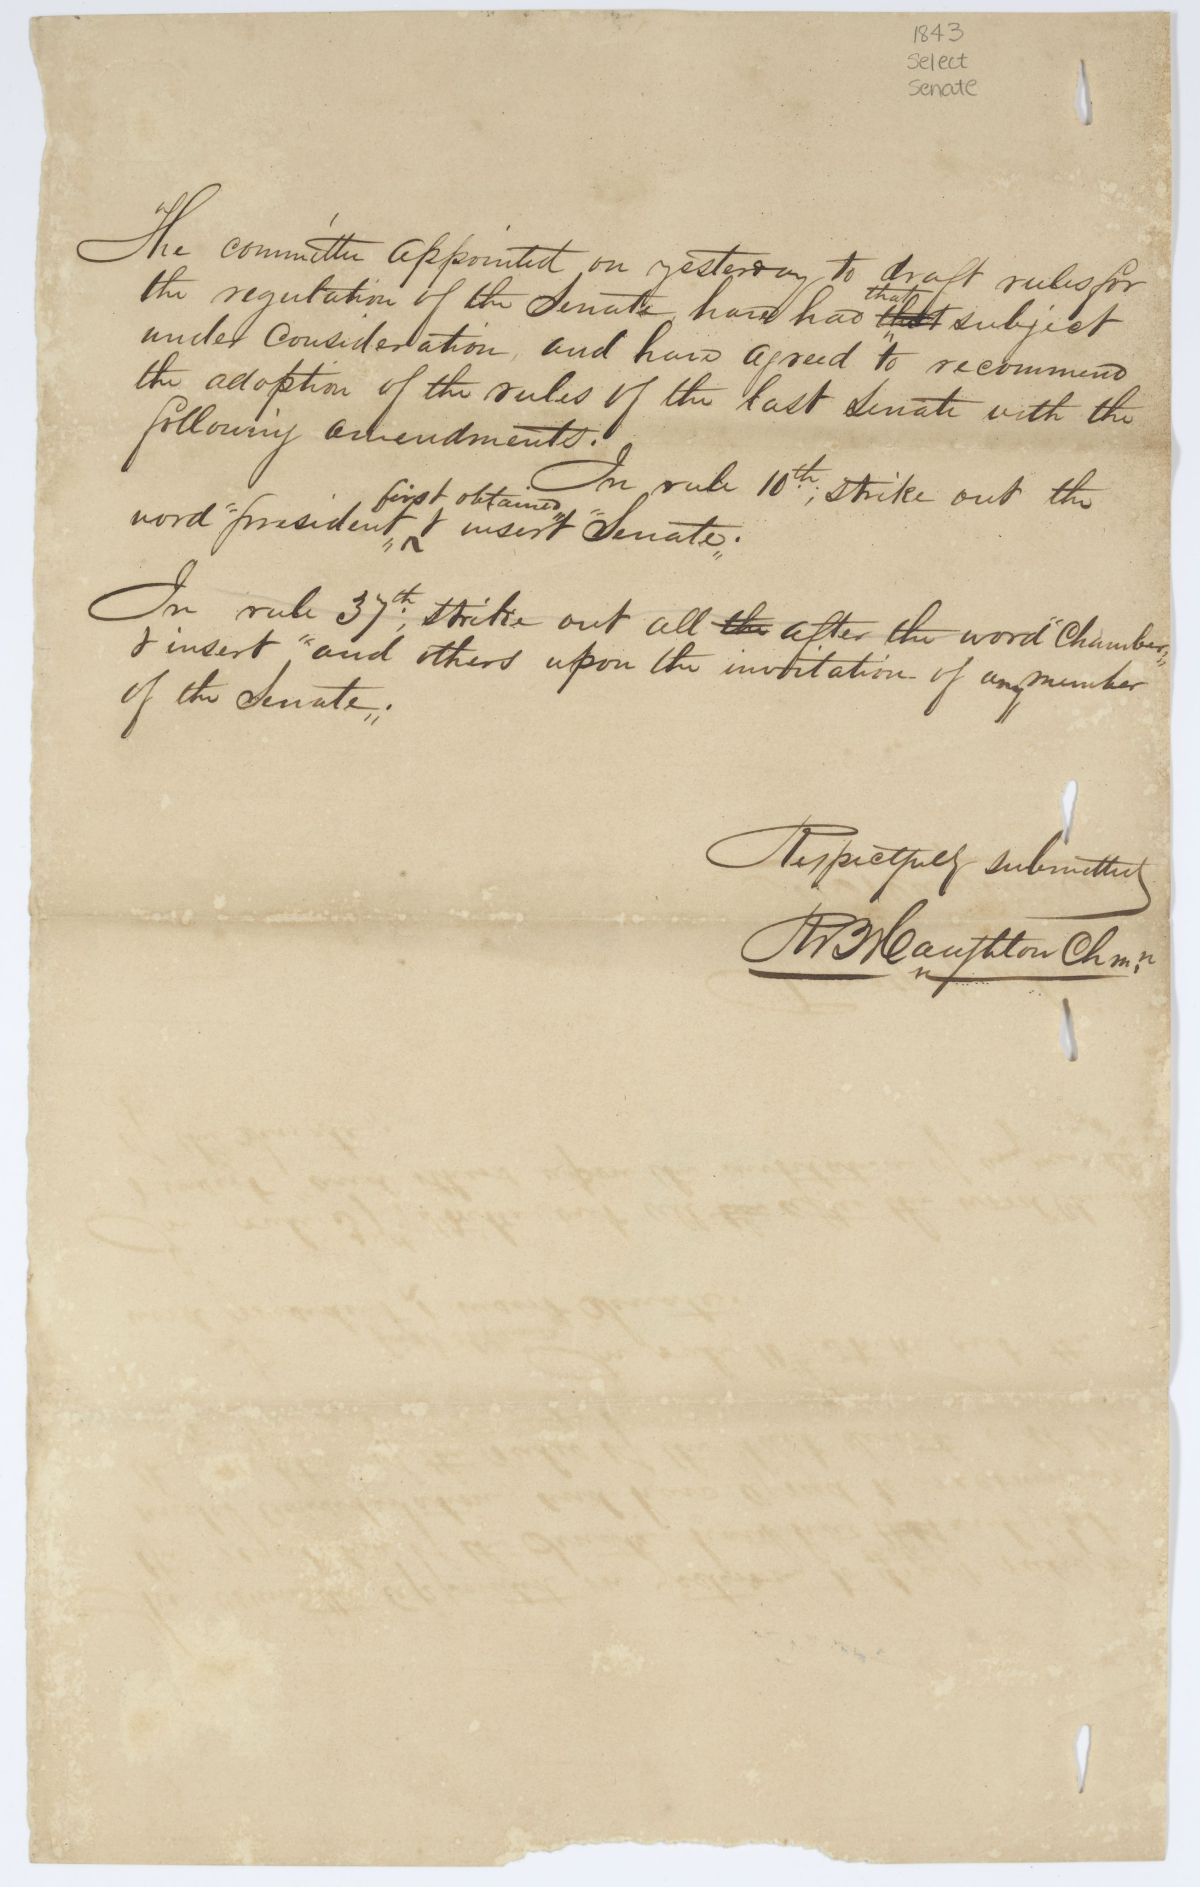 1843
Select
Senate
The committee appointed on yesterday to draft rules for
the regulation of the Senate, have had that subject
under consideration, and have agreed to recommend
the adoption of the rules of the last Senate with the
following amendments.
In rule 10th; strike out the
word "president" & insert "Senate".
first obtained
In rule 37th; strike out all the after the word "Chamber"
& insert "and others upon the invitation of any member
of the Senate".
Respectfully submitted
Chmn